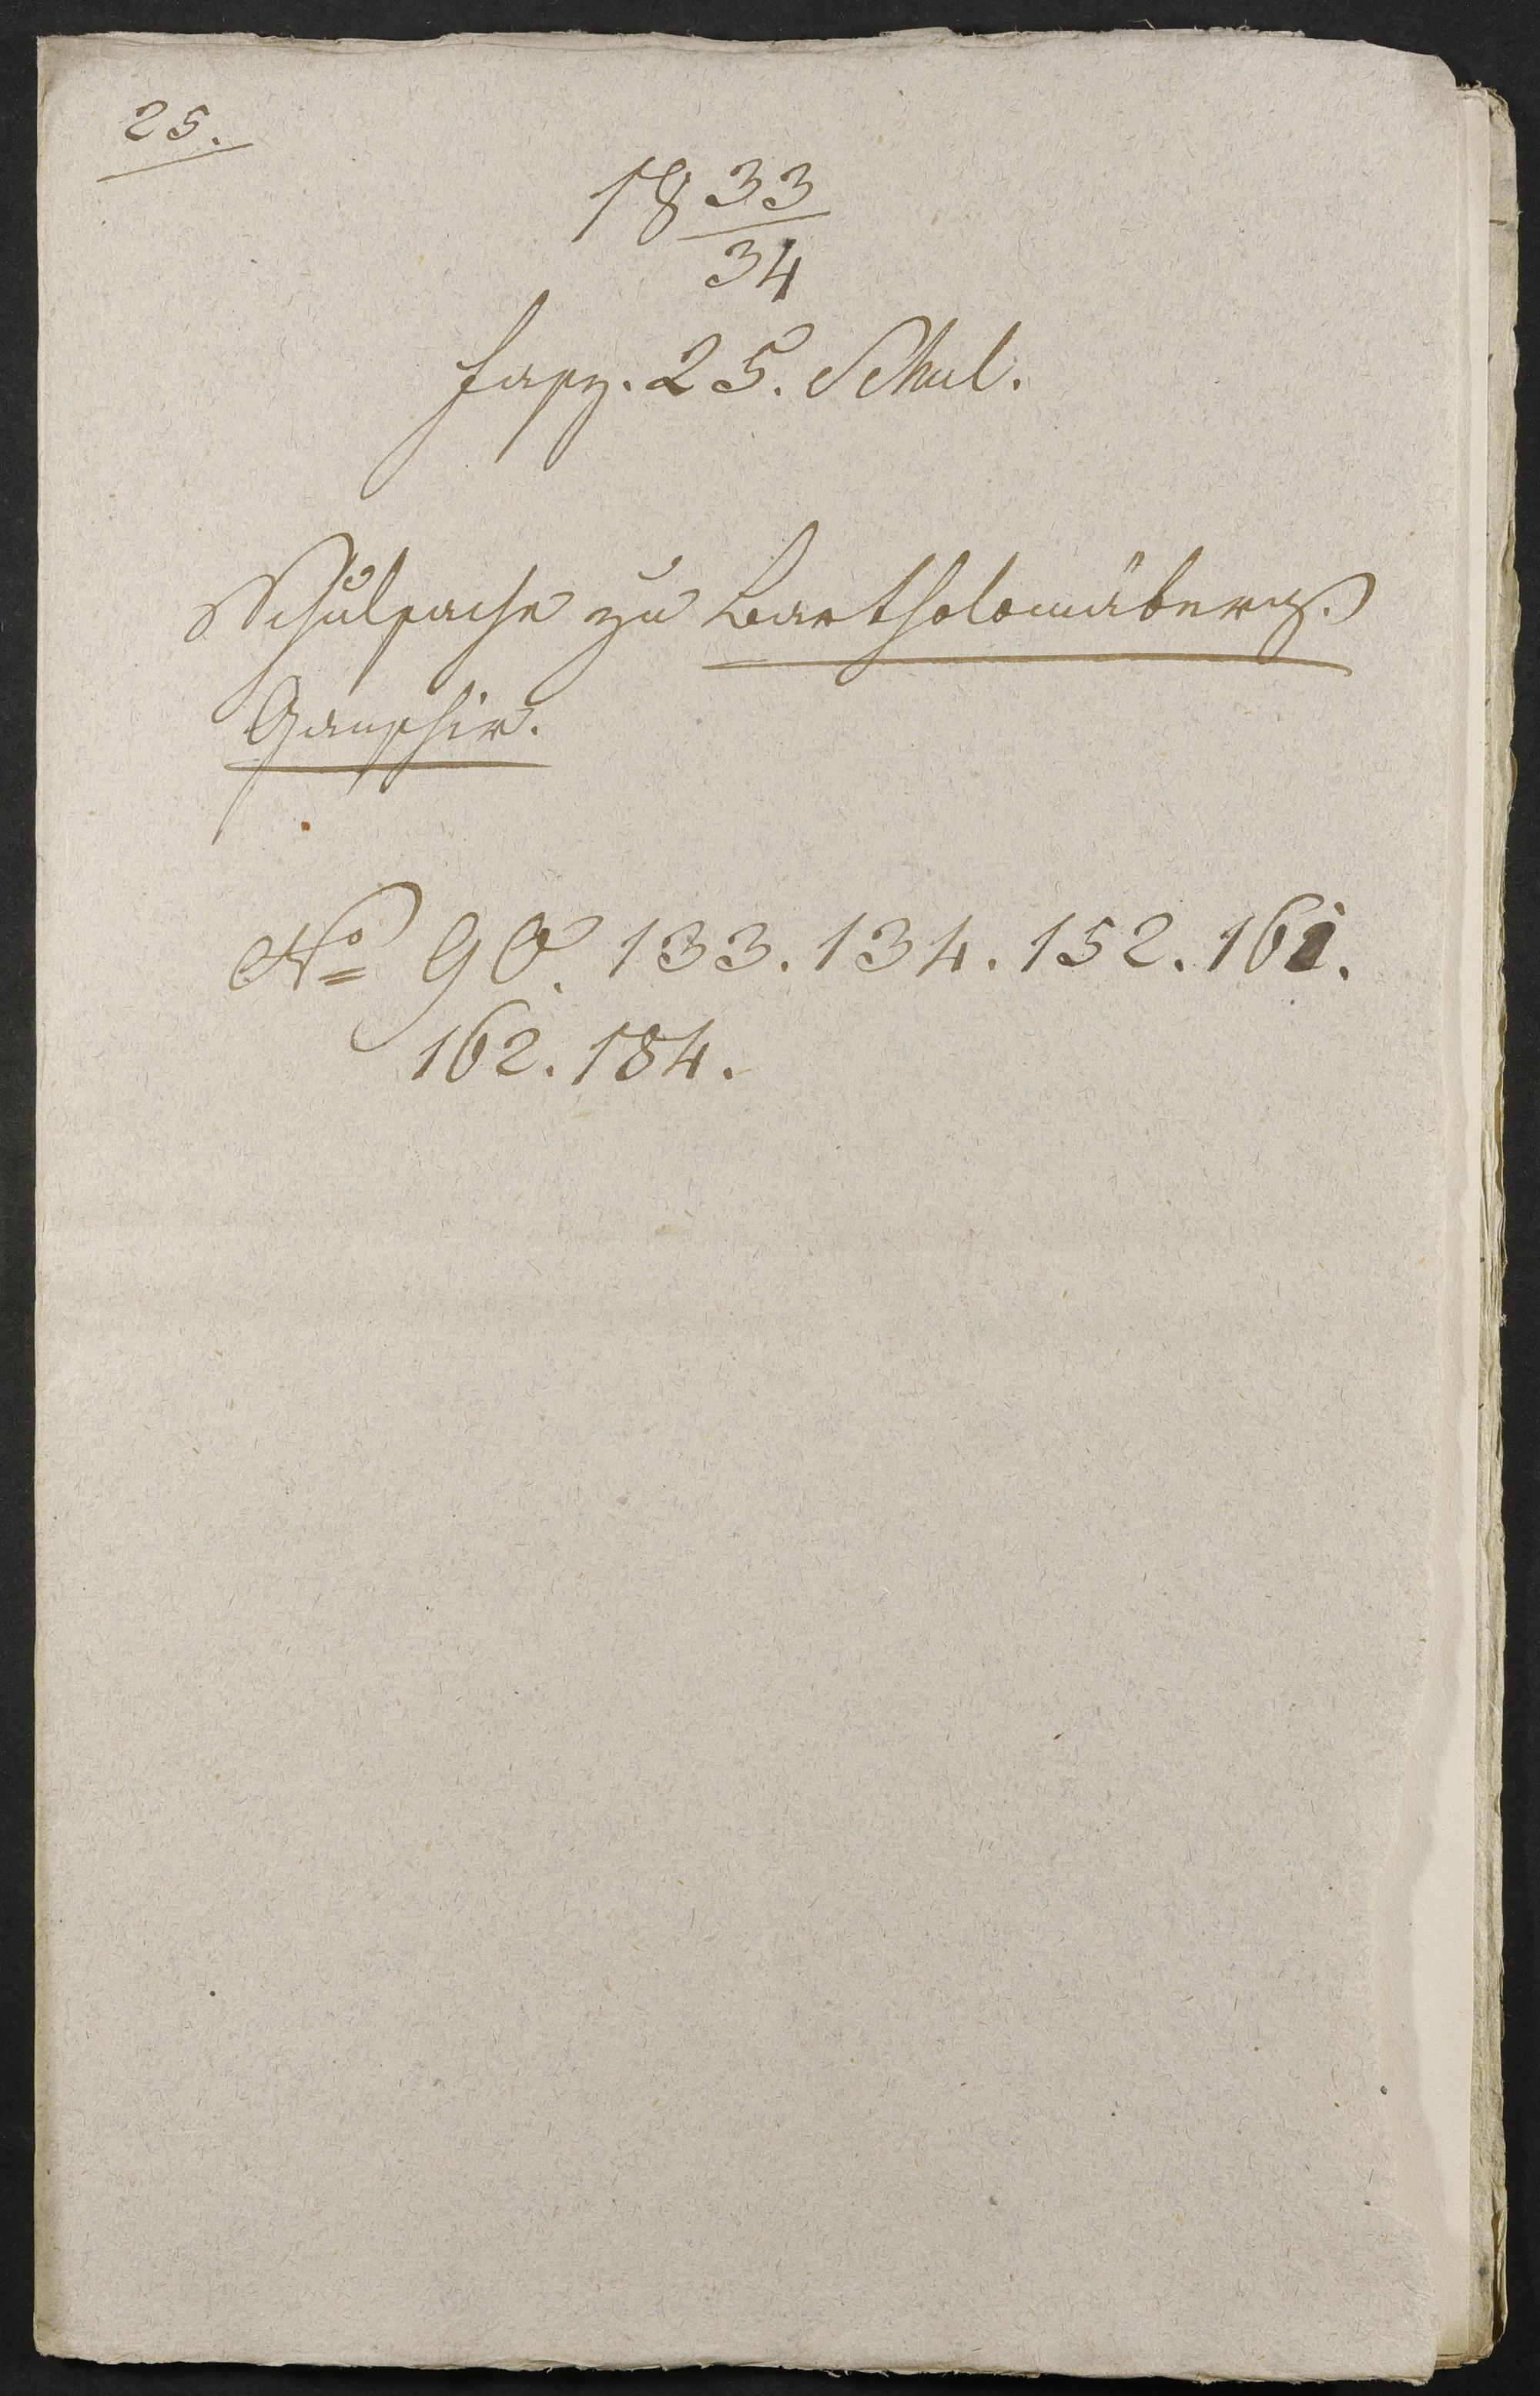 25.
18 33/34
fasz. 25. Schul.
Schulsache zu Bartholomäberg.
Ganzhir.
No 90. 133. 134. 152. 161.
162. 184.